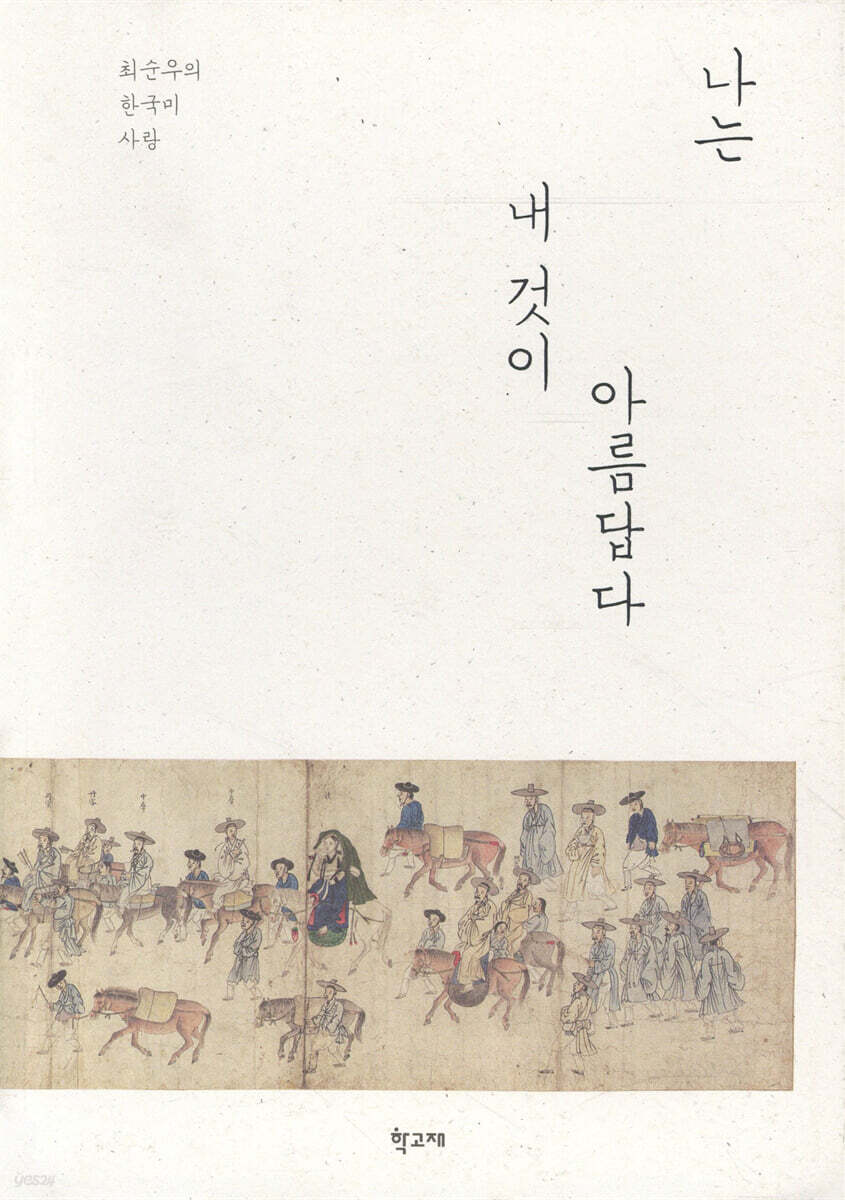 최순우의
한국미
사랑
나는
내 것이
아름답다
학고재
yes24